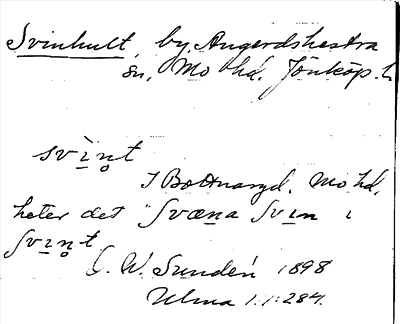 Svinhult, by, Angerdshestra
sn, Mo hd. Jönköp. L.
svi̱n̥t
I Bottnaryd, Mo hd,
heter det "Svæna svin i
svi̱n̥t
C. W. Sundén 1898
Ulma 1:1:284.